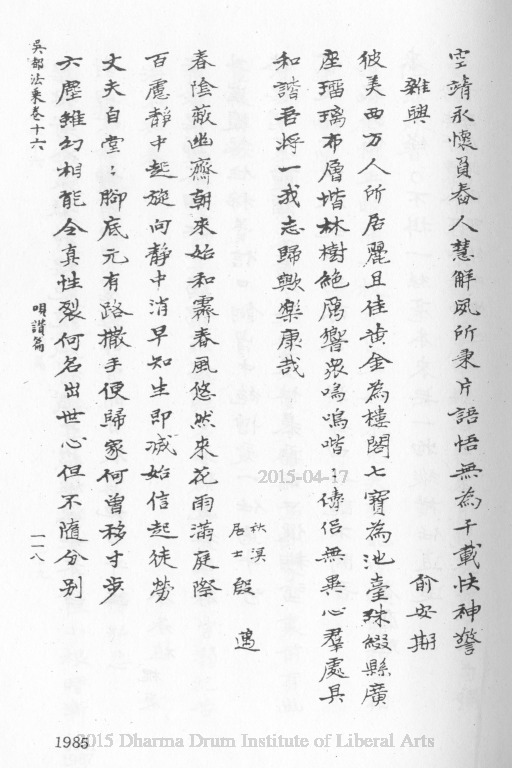 空諸永懷負舂人慧解夙所秉片語悟無為千載快神警
雜興 俞安期
彼美西方人所居麗且佳黃金為樓閣七寶為池臺珠綴縣廣
座璢璃布層堦林樹絕厲響眾鳴鳴喈〻儔侶無異心羣處具
和諧吾將一我志歸歟樂康哉
秋溟居士 殷邁
春陰蔽幽齋朝來始和霽春風悠然來花雨滿庭際
百慮靜中起旋向靜中消早知生即滅始信起徒勞
丈夫自堂〻腳底元有路撒手便歸家何曾移寸步
六塵雖幻相能令真性裂何名出世心但不隨分別
吳都法乘卷十六 唄讚篇 一一八
1985
2015-04-17
2015 Dharma Drum Institute of Liberal Arts